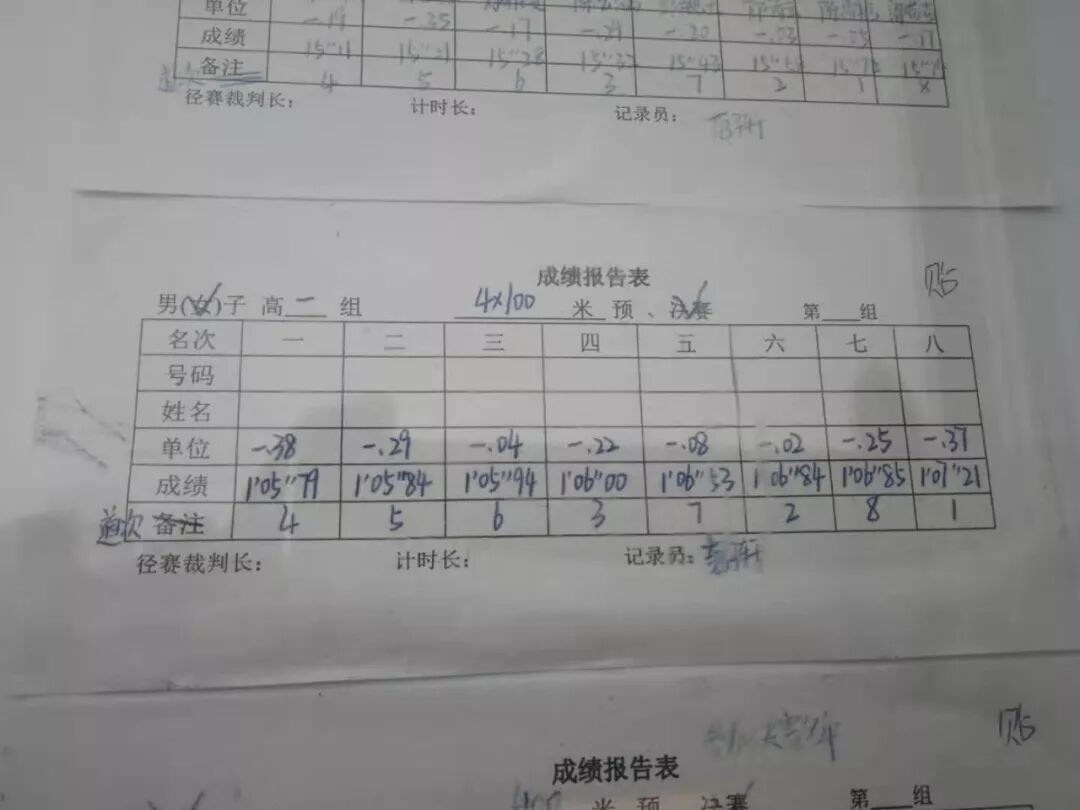 单位 -.19 -.35 -.17
成绩 15"11 15"21 15"28
备注 4 5 6 3 7 2 1 8
径赛裁判长： 计时长： 记录员：
贴
成绩报告表
男(女)子 高二 组 4×100 米 预、决赛 第 组
名次 一 二 三 四 五 六 七 八
号码
姓名
单位 -.38 -.29 -.04 -.22 -.08 -.02 -.25 -.37
成绩 1'05"79 1'05"84 1'05"94 1'06"00 1'06"53 1'06"84 1'06"85 1'07"21
道次 备注 4 5 6 3 7 2 8 1
径赛裁判长： 计时长： 记录员：
贴
成绩报告表
米 预 决赛 第 组